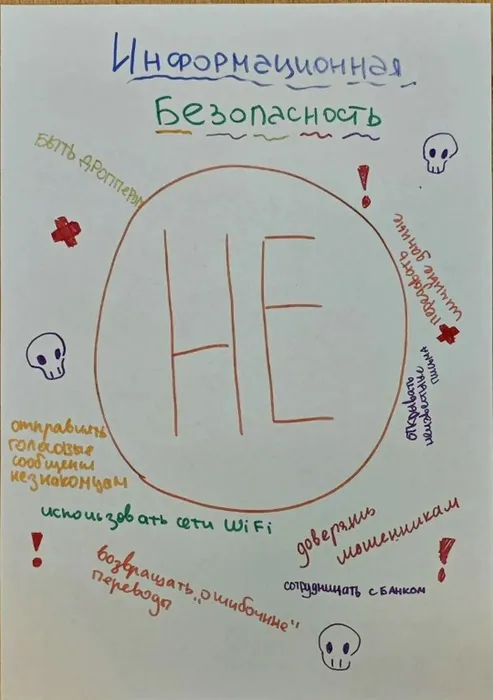 Информационная
Безопасность
БЫТЬ ДРОППЕРОМ
НЕ
передавать
личные данные
открывать
неизвестные
письма
отправлять
голосовые
сообщены
незнакомцам
использовать сети WiFi
доверять
мошенникам
сотрудницать с банком
возвращать „ошибочные"
переводы